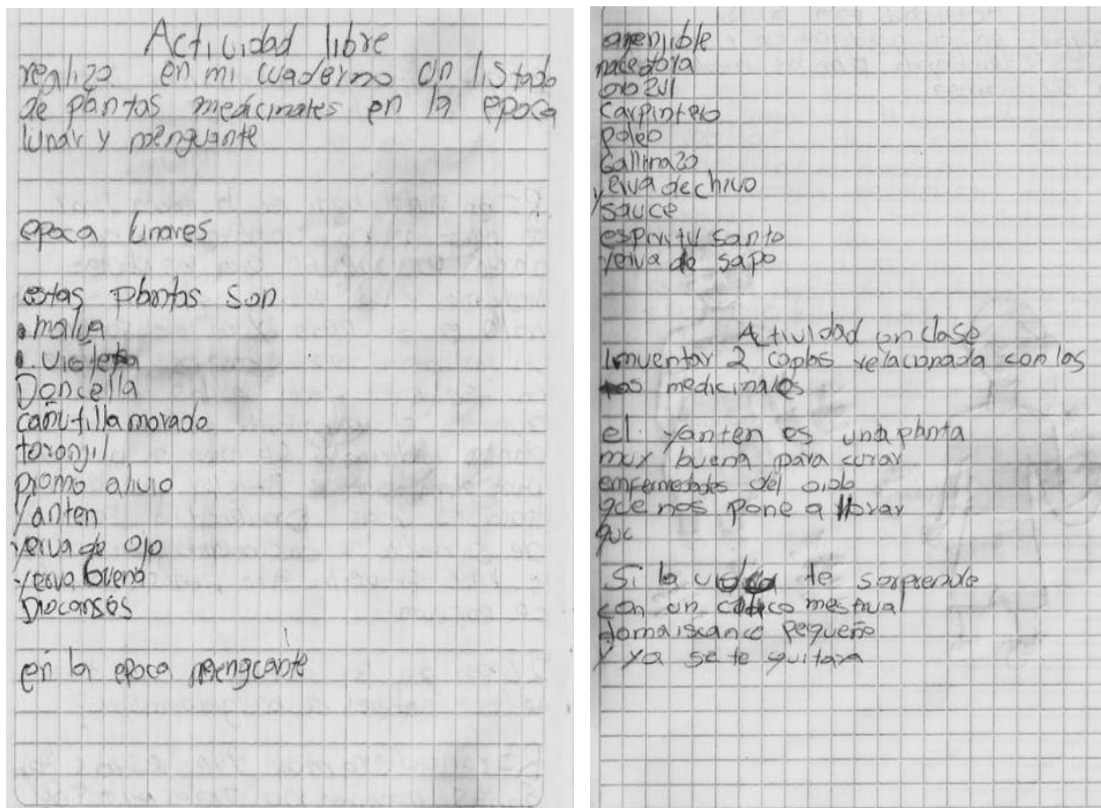 Actividad libre
realizo en mi cuaderno un listado
de plantas medicinales en la epoca
lunar y menguante
epoca lunares
estas plantas son
. malva
. violeta
Doncella
cañutilla morado
toronjil
promo alivio
Yanten
yerva de ojo
yerva buena
Diocansés
en la epoca menguante
ajenjible
nacedora
carpintero
poleo
Gallinazo
yerva de chivo
sauce
espiritu santo
yerva de sapo
Actividad en clase
Inventar 2 coplas relacionada con las
medicinales
el yanten es una planta
muy buena para curar
enfermedades del
que nos pone a llorar
que
Si la te sorprende
con un colico mestrual
pequeño
y ya se te quitara